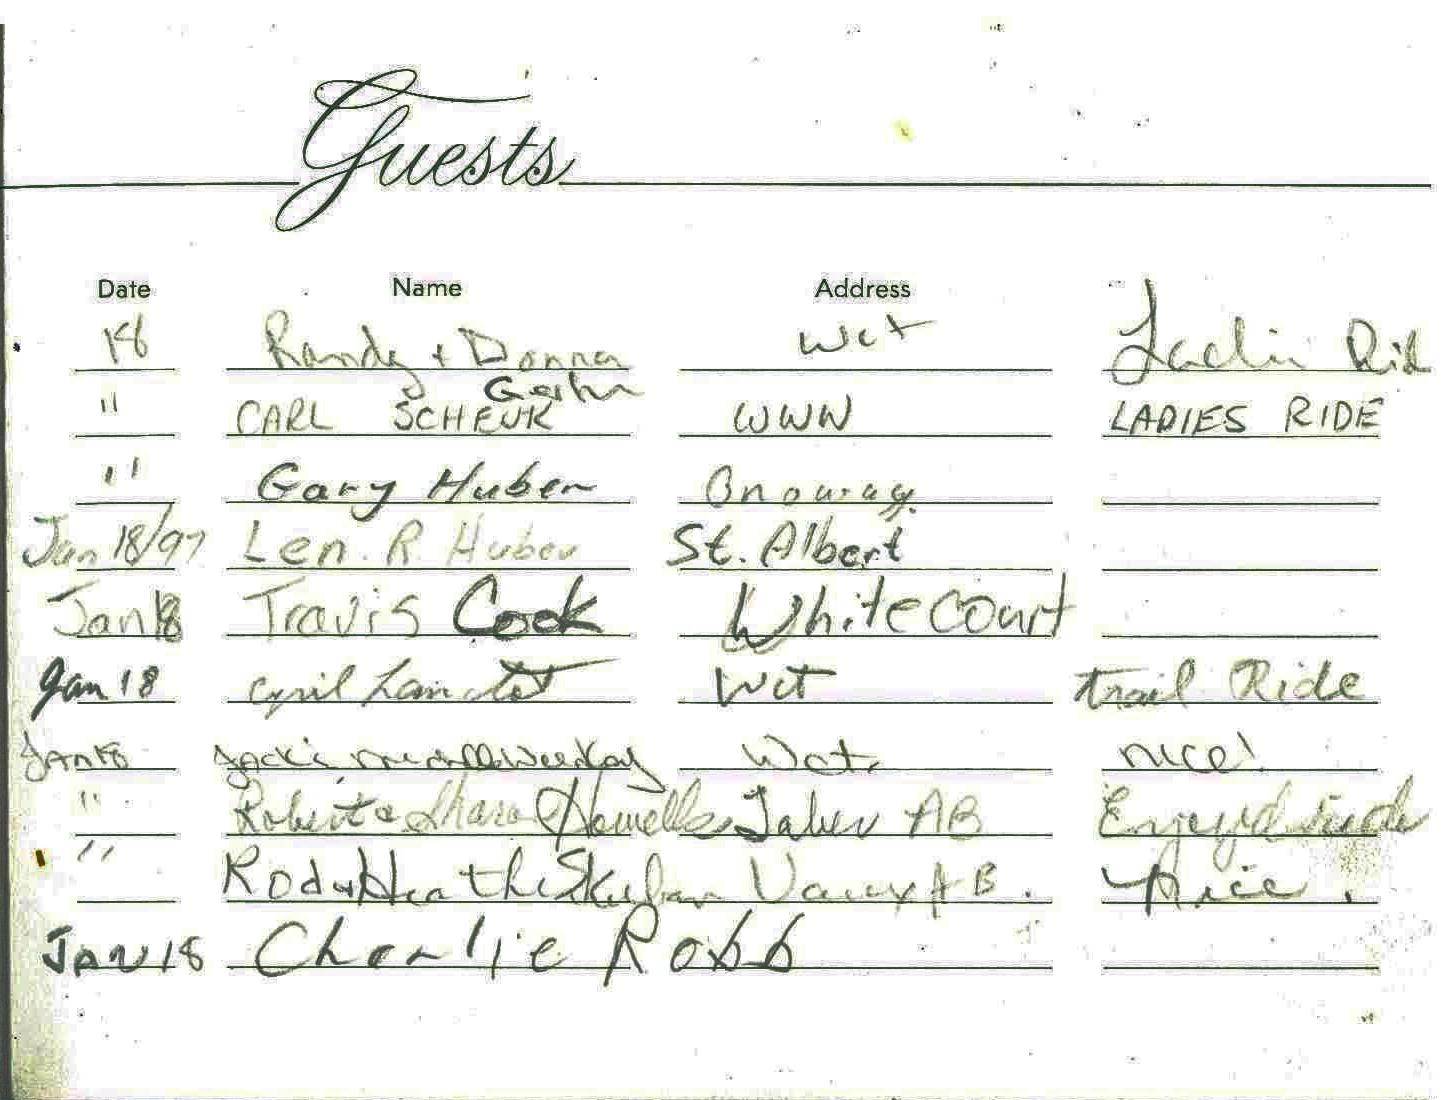 Guests
Date Name Address
18 Randy + Donna Wct Ladies Rid
" CARL SCHEUK WWW LADIES RIDE
" Gary Huber Onoway
Jan 18/97 Len. R Huber St. Albert
Jan 18 Travis Cook Whitecourt
Jan 18 Cyril Wct trail Ride
Jan 18 Jacki Wct. nice!
" Robert & Sharon Howells Taber AB Enjoyd ride
" Rod & Heather Vauxhall AB. Nice.
JAN 18 Charlie Robb